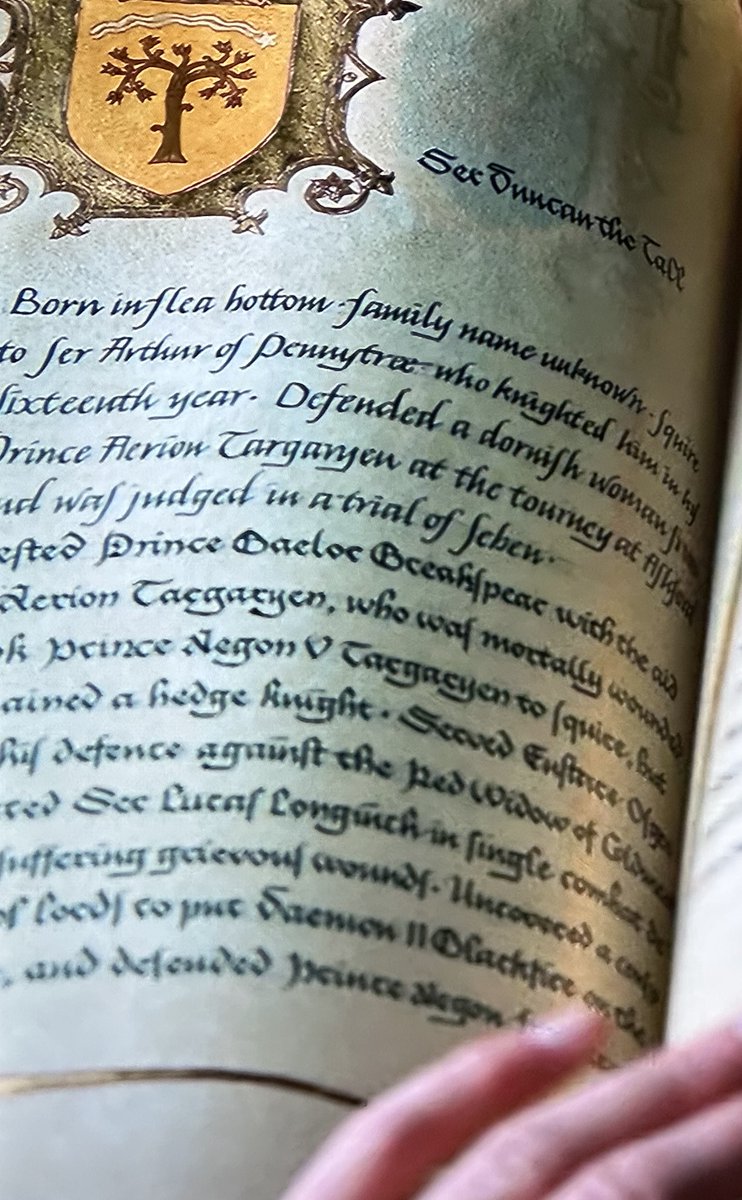 Ser Duncan the Tall
Born in flea bottom family name unknown. Squire
to Ser Arthur of Pennytree who knighted him in his
sixteenth year. Defended a dornish woman from
Prince Aerion Targaryen at the tourney at Ashford
and was judged in a trial of seben.
Prince Baelor Breakspear with the aid
Aerion Targaryen, who was mortally wounded
Prince Aegon V Targaryen to squire, but
a hedge knight. Served Eustace
his defence against the Red Widow of
Ser Lucas Longinch in single combat
suffering grievous wounds. Uncovered a
of lords to put Daemon II Blackfire on the
and defended Prince Aegon